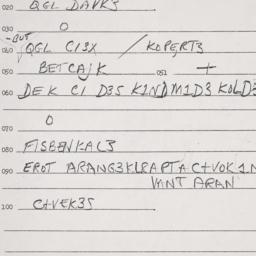 020 QGL DAVKS
030 O
-BUT
040 QGL CISX / KOPERTS
050 BETCAJK 051 +
060 DEK CI D3S K1ND M1D3 KOLD3
070 O
080 FISBENKALS
090 EROT ARANG3KLRAPTAC+VOK1N
VANT ARAN
100 C+VEK3S